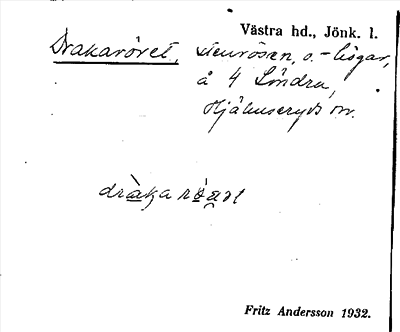 Västra hd., Jönk. l.
Drakaröret, stenrösen, o. -högar,
å 4 Löndra,
Hjälmseryds sn.
dràkarö̀ət
Fritz Andersson 1932.